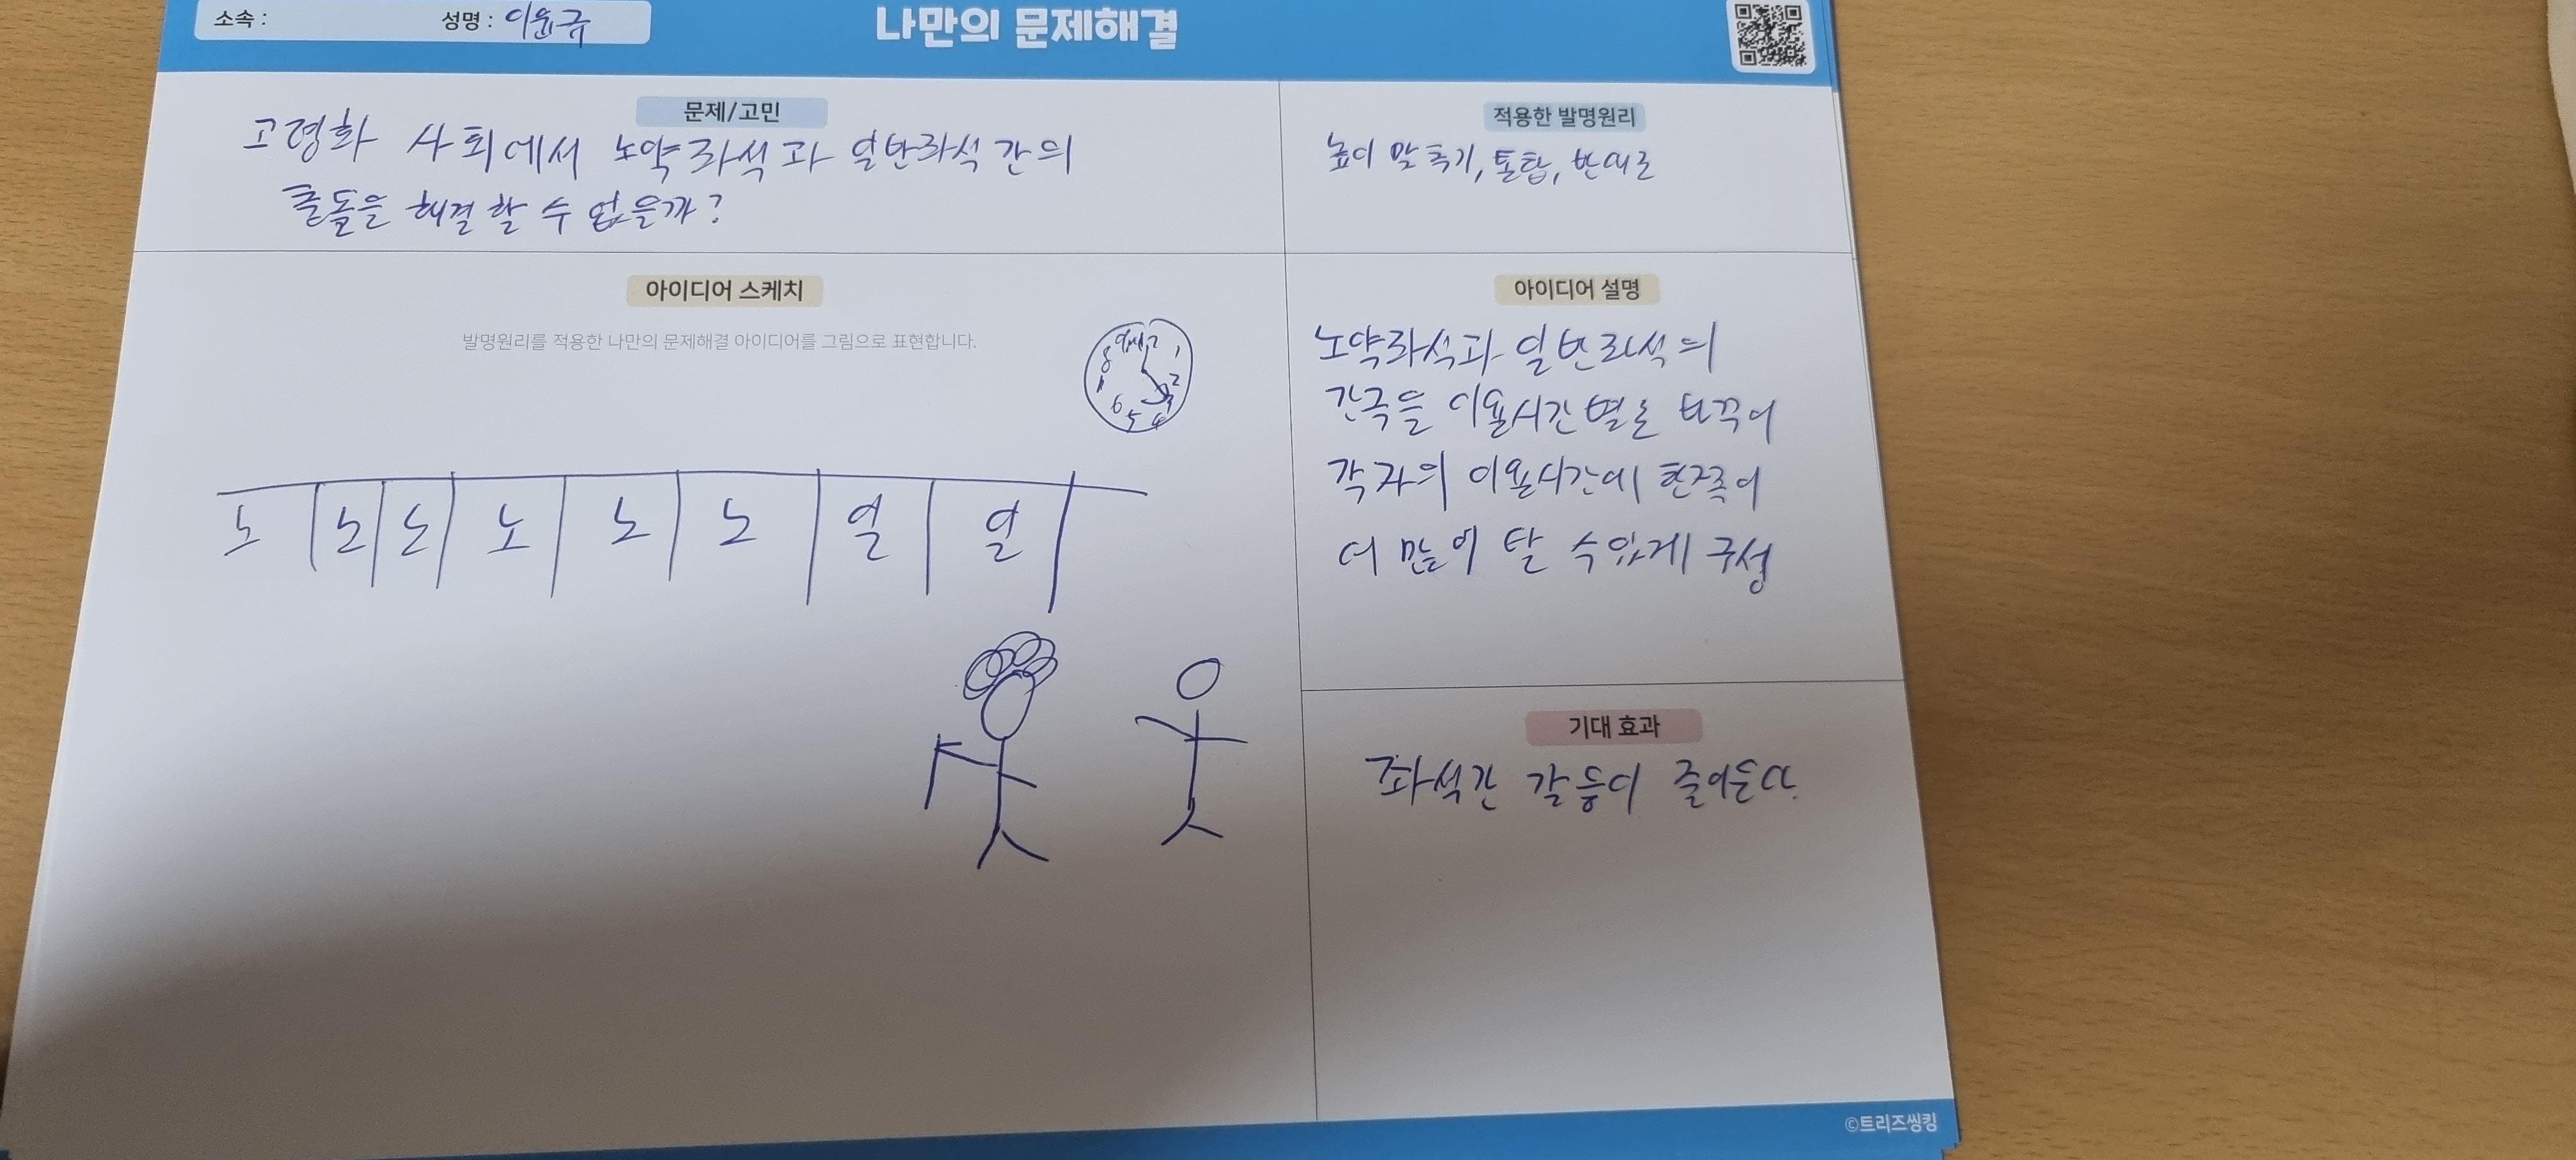 소속 :
성명 : 이윤규
나만의 문제해결
문제/고민
고령화 사회에서 노약좌석과 일반좌석 간의
충돌을 해결 할 수 없을까?
적용한 발명원리
높이 맞추기, 통합, 반대로
아이디어 스케치
발명원리를 적용한 나만의 문제해결 아이디어를 그림으로 표현합니다.
1
2
3
4
5
6
8
노 노 노 노 노 노 일 일
아이디어 설명
노약좌석과 일반좌석의
간극을 이용시간별로 바꾸어
각자의 이용시간에 한쪽이
더 많이 탈 수 있게 구성
기대 효과
좌석간 갈등이 줄어든다.
©트리즈씽킹